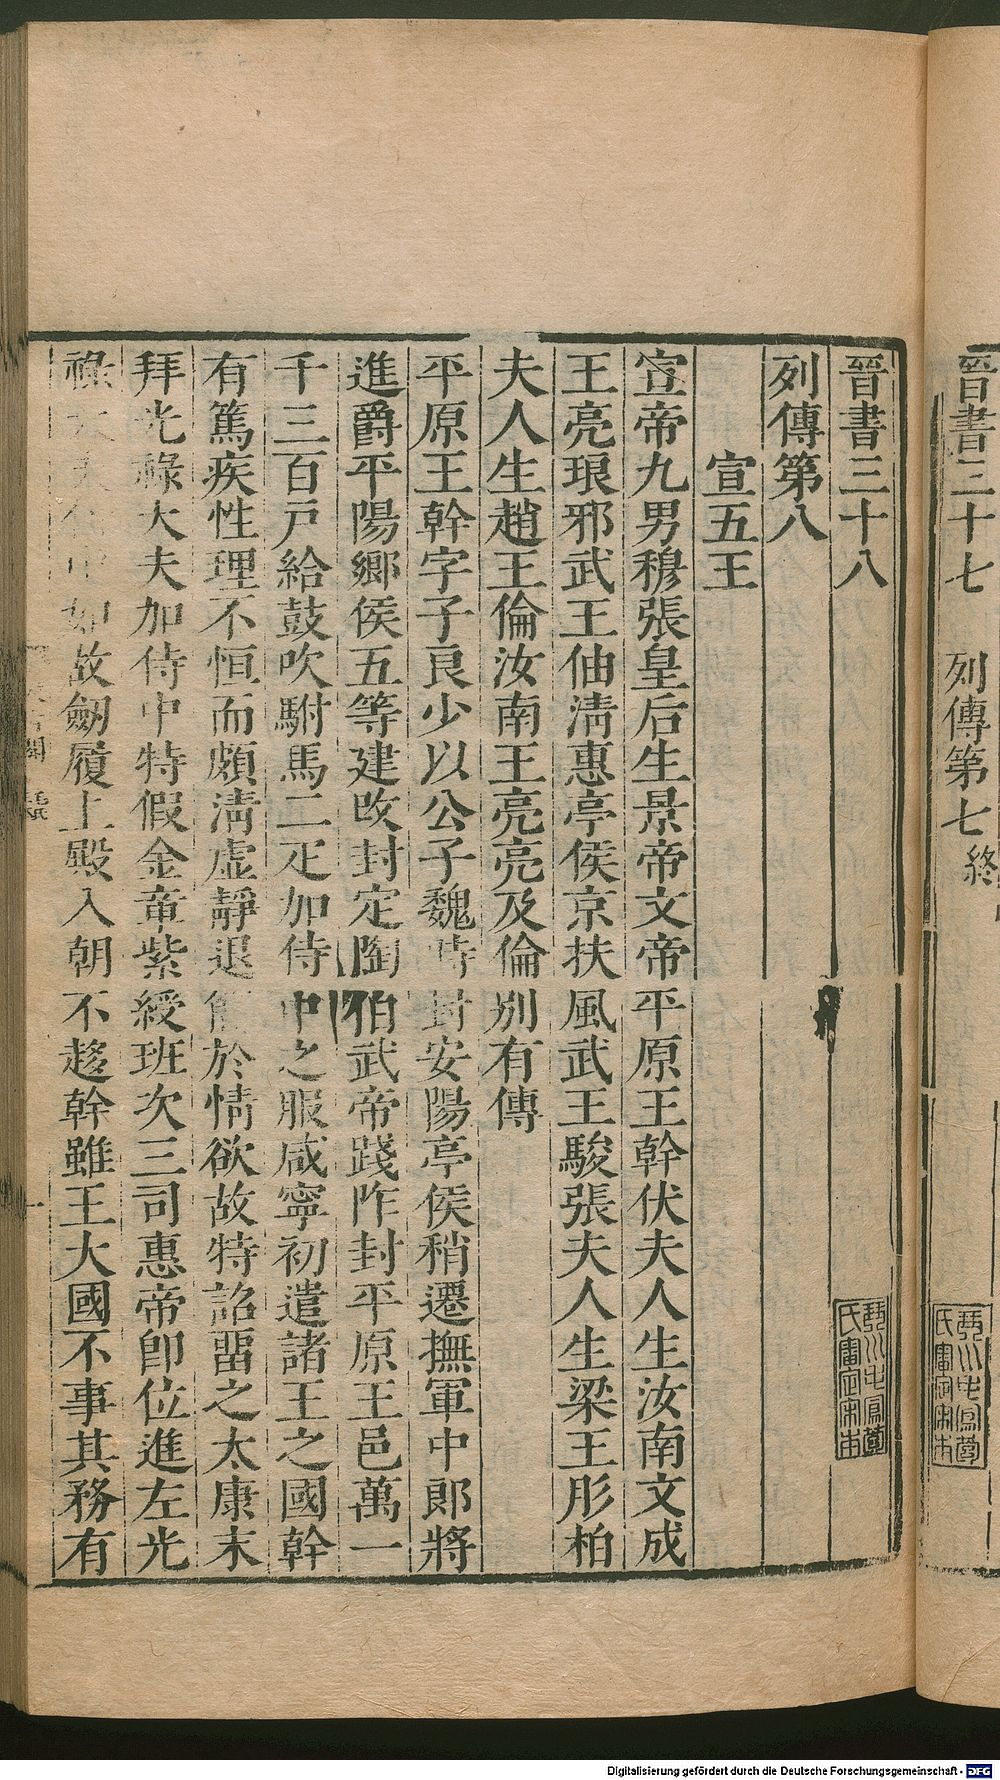 晉書三十七　列傳第七終
晉書三十八
列傳第八
宣五王
宣帝九男穆張皇后生景帝文帝平原王幹伏夫人生汝南文成
王亮琅邪武王伷淸惠亭侯京扶風武王駿張夫人生梁王肜柏
夫人生趙王倫汝南王亮亮及倫別有傳
平原王幹字子良少以公子魏時封安陽亭侯稍遷撫軍中郎將
進爵平陽鄉侯五等建改封定陶伯武帝踐阼封平原王邑萬一
千三百戸給鼓吹駙馬二疋加侍中之服咸寧初遣諸王之國幹
有篤疾性理不恒而頗淸虛靜退簡於情欲故特詔畱之太康末
拜光祿大夫加侍中特假金章紫綬班次三司惠帝卽位進左光
祿大 如故劒履上殿入朝不趍幹雖王大國不事其務有
琴川毛鳳苞氏審定宋本
琴川毛鳳苞氏審定宋本
Digitalisierung gefördert durch die Deutsche Forschungsgemeinschaft - DFG